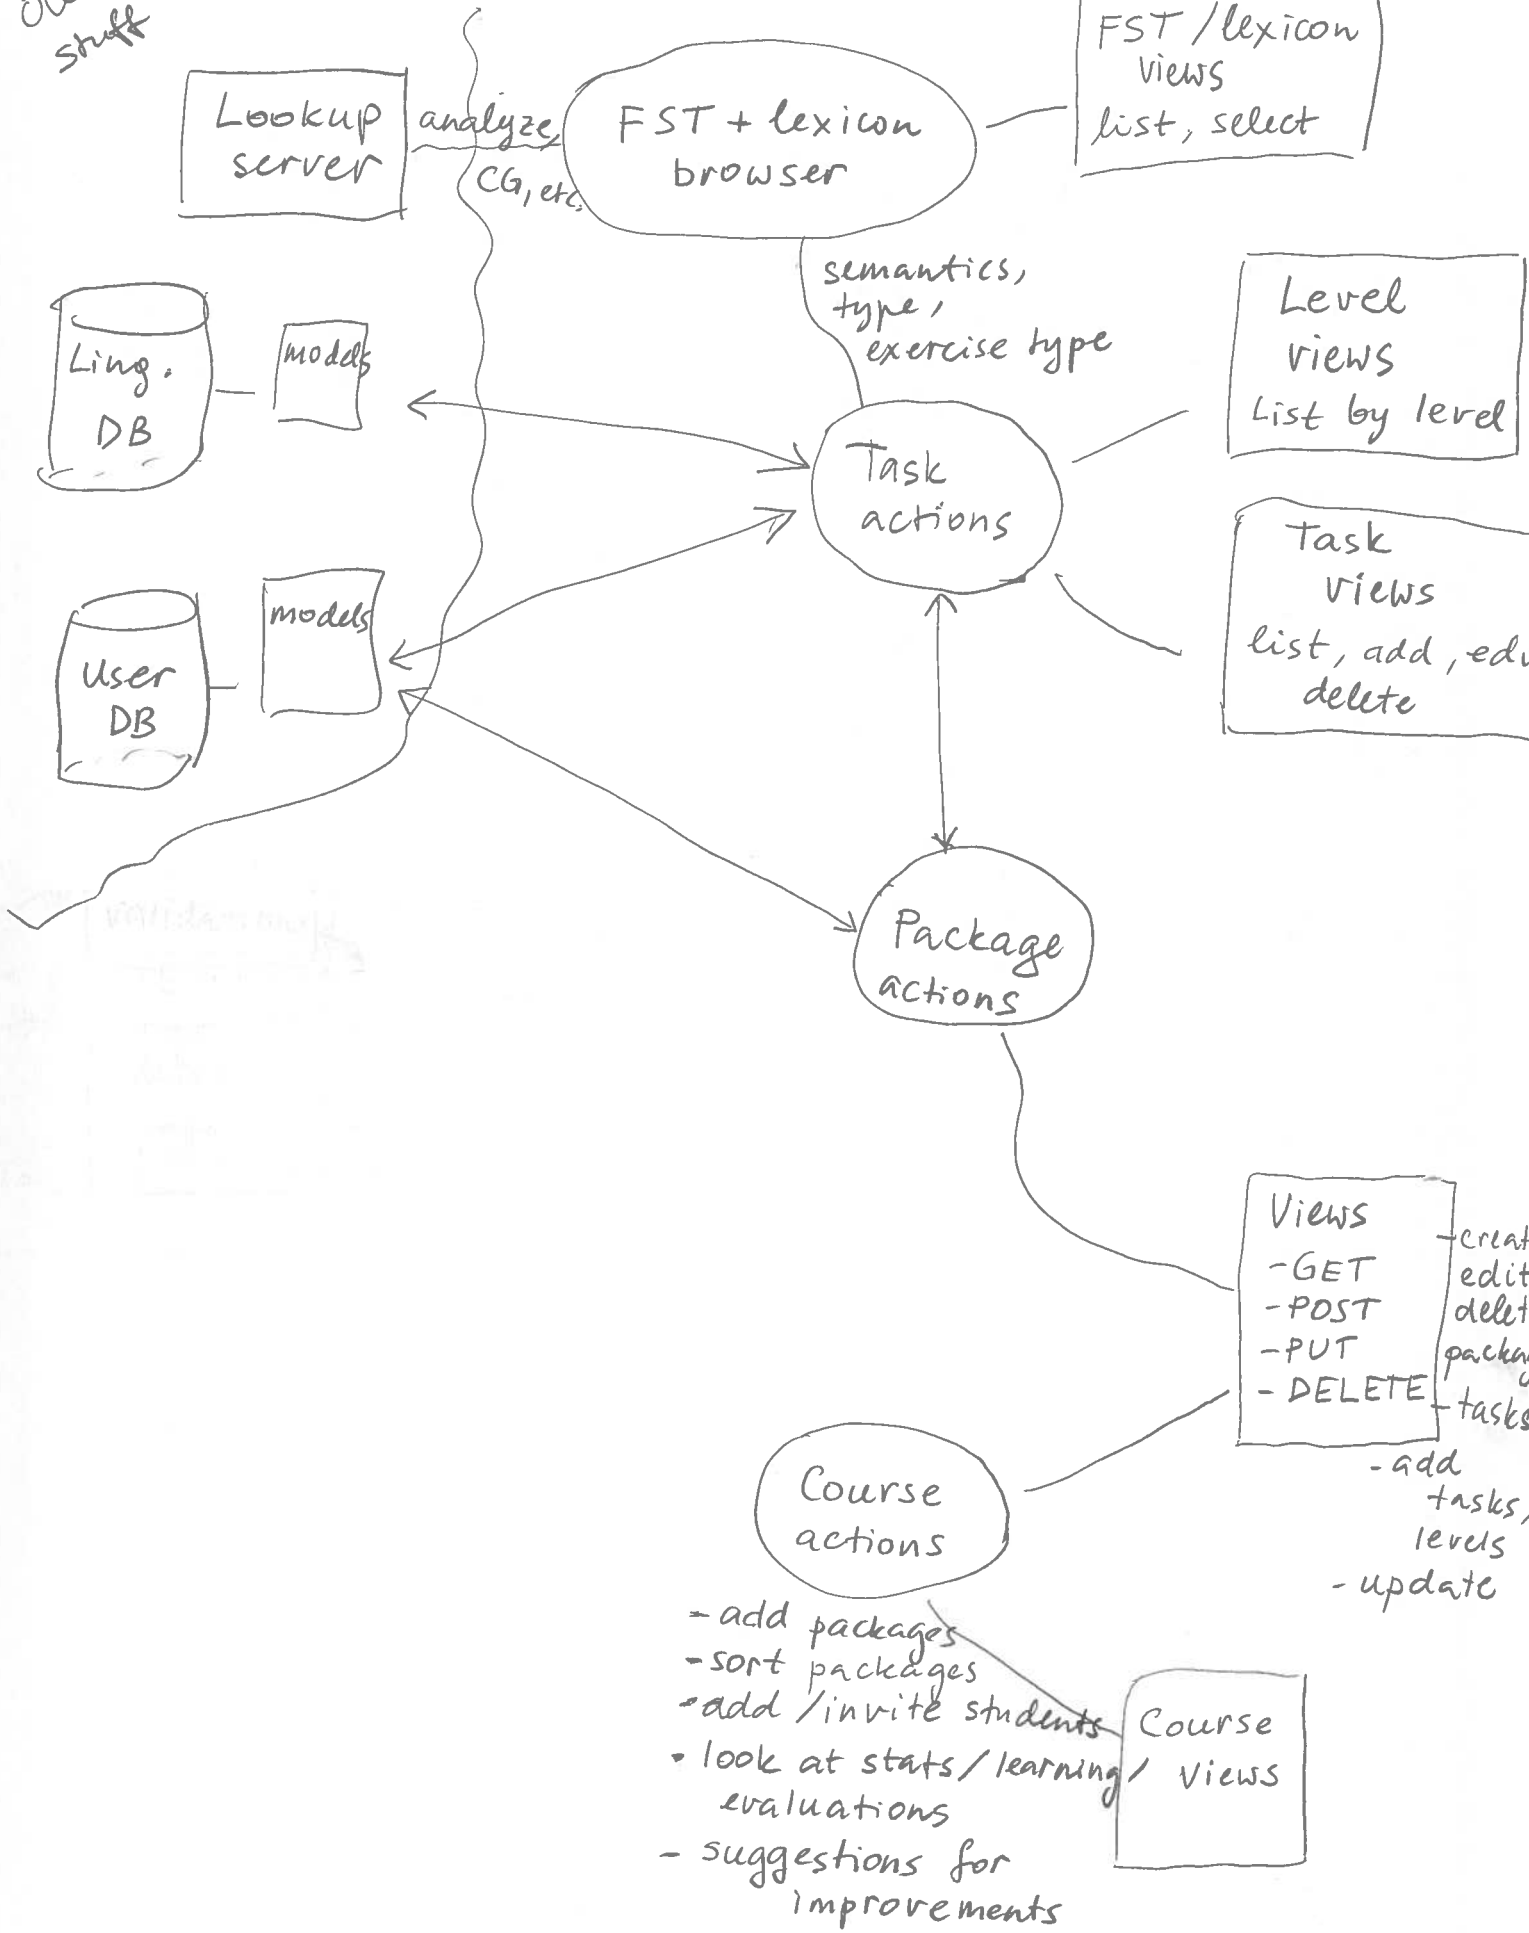 stuff
Lookup
server
analyze,
CG, etc.
FST + lexicon
browser
FST / lexicon
views
list, select
semantics,
type,
exercise type
Ling.
DB
models
Level
views
List by level
Task
actions
Task
views
list, add,
delete
User
DB
models
Package
actions
Views
- GET
- POST
- PUT
- DELETE
edit
- tasks
- add
tasks,
levels
- update
Course
actions
- add packages
- sort packages
- add / invite students
- look at stats / learning /
evaluations
- suggestions for
improvements
Course
views